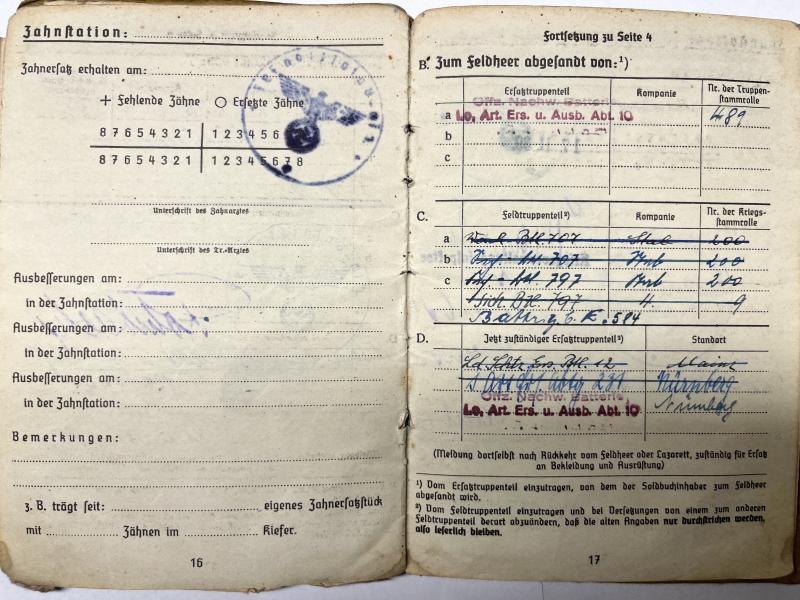 Zahnstation:
Zahnersatz erhalten am:
+ Fehlende Zähne ○ Ersetzte Zähne
8 7 6 5 4 3 2 1 | 1 2 3 4 5 6
8 7 6 5 4 3 2 1 | 1 2 3 4 5 6 7 8
Unterschrift des Zahnarztes
Unterschrift des Tr.-Arztes
Ausbesserungen am:
in der Zahnstation:
Ausbesserungen am:
in der Zahnstation:
Ausbesserungen am:
in der Zahnstation:
Bemerkungen:
z. B. trägt seit: eigenes Zahnersatzstück
mit Zähnen im Kiefer.
16
Fortsetzung zu Seite 4
B. Zum Feldheer abgesandt von:¹)
Ersatztruppenteil Kompanie Nr. der Truppenstammrolle
Offz. Nachw. Batterie
a Le. Art. Ers. u. Ausb. Abt. 10 489
b
c
C. Feldtruppenteil²) Kompanie Nr. der Kriegsstammrolle
a Btl. 707 Stab 200
b 707 Stab 200
c 797 Stab 200
Sich. Btl. 797 4. 9
584
D. Jetzt zuständiger Ersatztruppenteil²) Standort
Ld. Schtz. Ers. Btl. 12 Mainz
231 Nürnberg
Offz. Nachw. Batterie Nürnberg
Le. Art. Ers. u. Ausb. Abt. 10
(Meldung dortselbst nach Rückkehr vom Feldheer oder Lazarett, zuständig für Ersatz
an Bekleidung und Ausrüstung)
¹) Vom Ersatztruppenteil einzutragen, von dem der Soldbuchinhaber zum Feldheer
abgesandt wird.
²) Vom Feldtruppenteil einzutragen und bei Versetzungen von einem zum anderen
Feldtruppenteil derart abzuändern, daß die alten Angaben nur durchstrichen werden,
also leserlich bleiben.
17